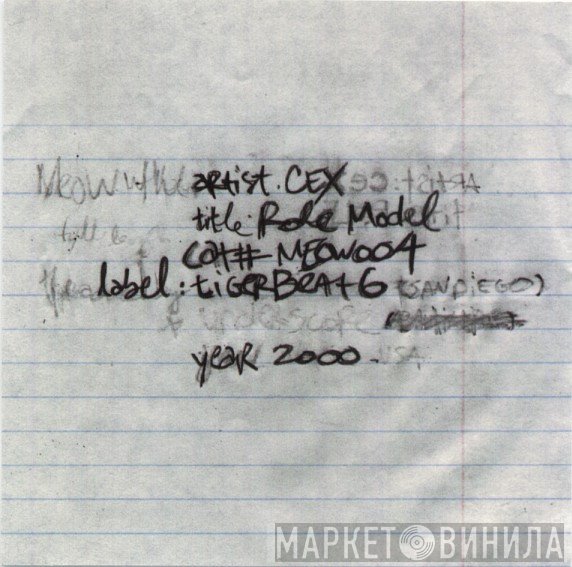 artist. CEX
title: Role Model
cat# MEOW004
label: tiGERBEAt6 (SANDIEGO)
year 2000.
USA
МАРКЕТ ВИНИЛА